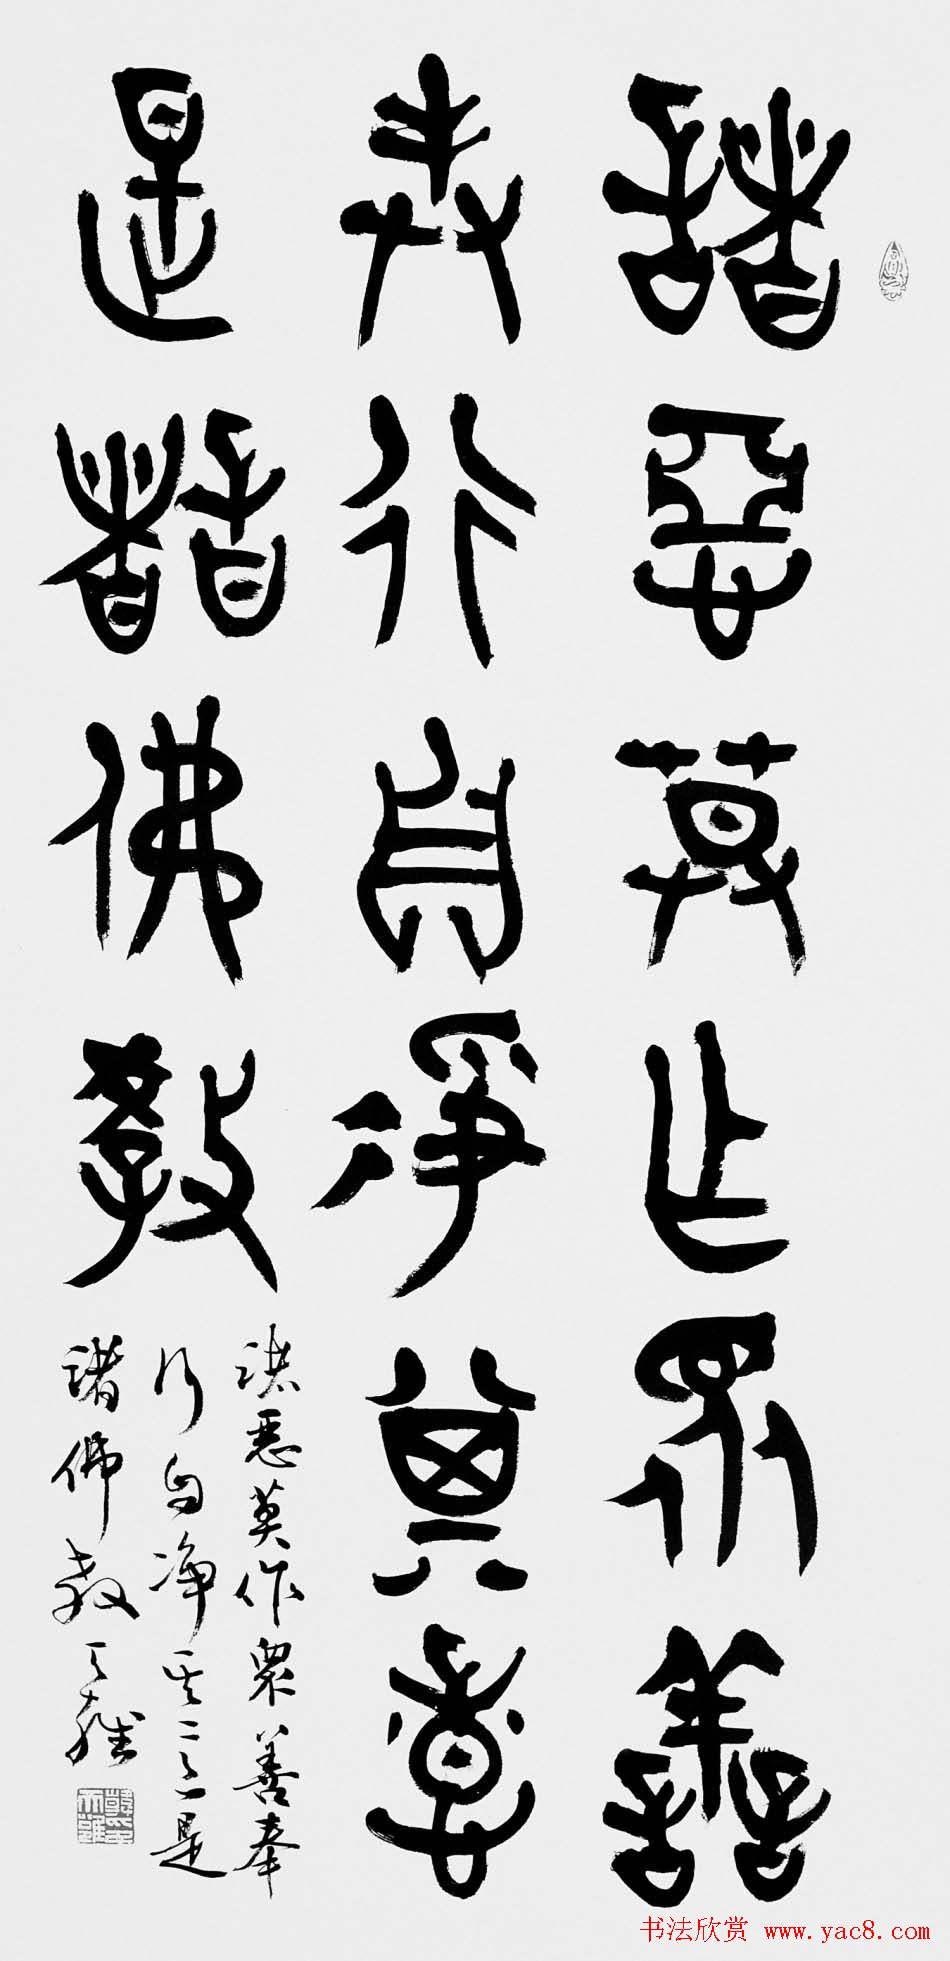 諸惡莫作眾善
奉行自淨其意
是諸佛教
諸惡莫作眾善奉
行自净其意是
諸佛教 天雍
书法欣赏 www.yac8.com